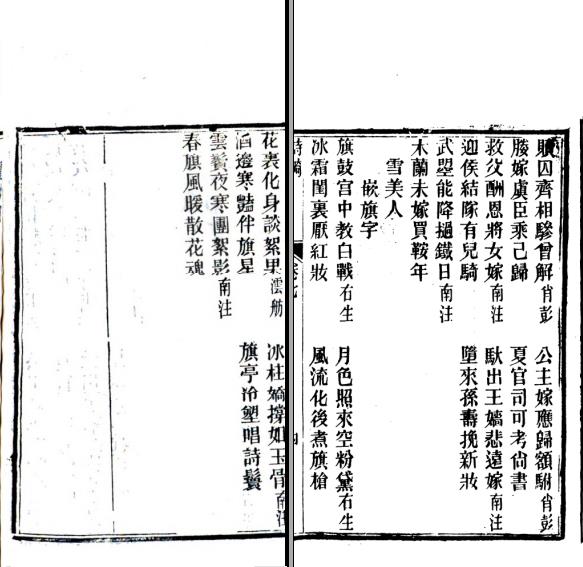 贖囚齊相驂曾解肖彭 公主嫁應歸額駙肖彭
媵嫁虞臣乘己歸 夏官司可考尙書
救父酬恩將女嫁南注 馱出王嬙悲遠嫁南注
迎侯結隊有兒騎 墮來孫壽挽新妝
武曌能降撾鐵日南注
木蘭未嫁買鞍年
雪美人
嵌旗字
旗鼓宮中教白戰右生 月色照來空粉黛右生
冰霜閨裏厭紅妝 風流化後煮旗槍
花裳化身談絮果澐舫 冰柱嬌撐如玉骨南注
酒邊寒豔伴旗星 旗亭冷塑唱詩鬟
雲鬢夜寒團絮影南注
春旗風暖散花魂